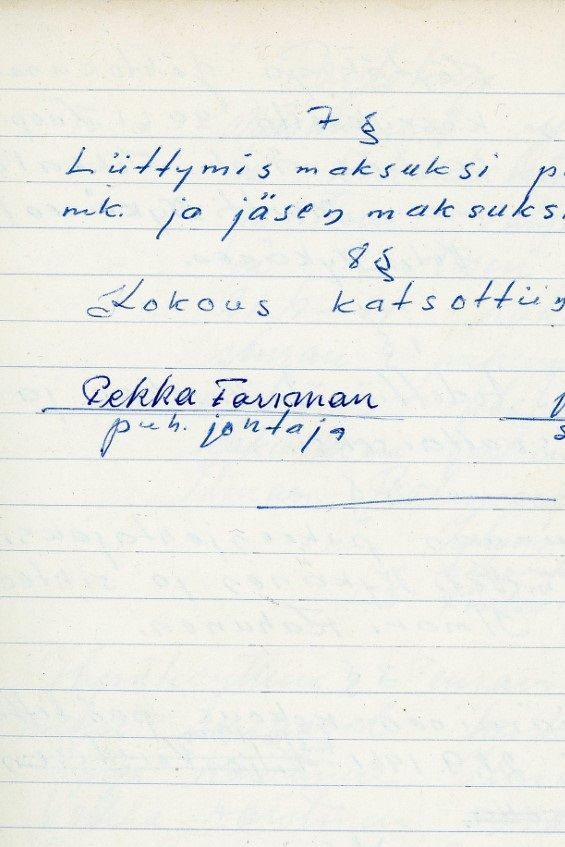 7 §
Liittymismaksuksi p
mk. ja jäsenmaksuksi
8 §
Kokous katsottiin
Pekka Forsman
puh. johtaja
s